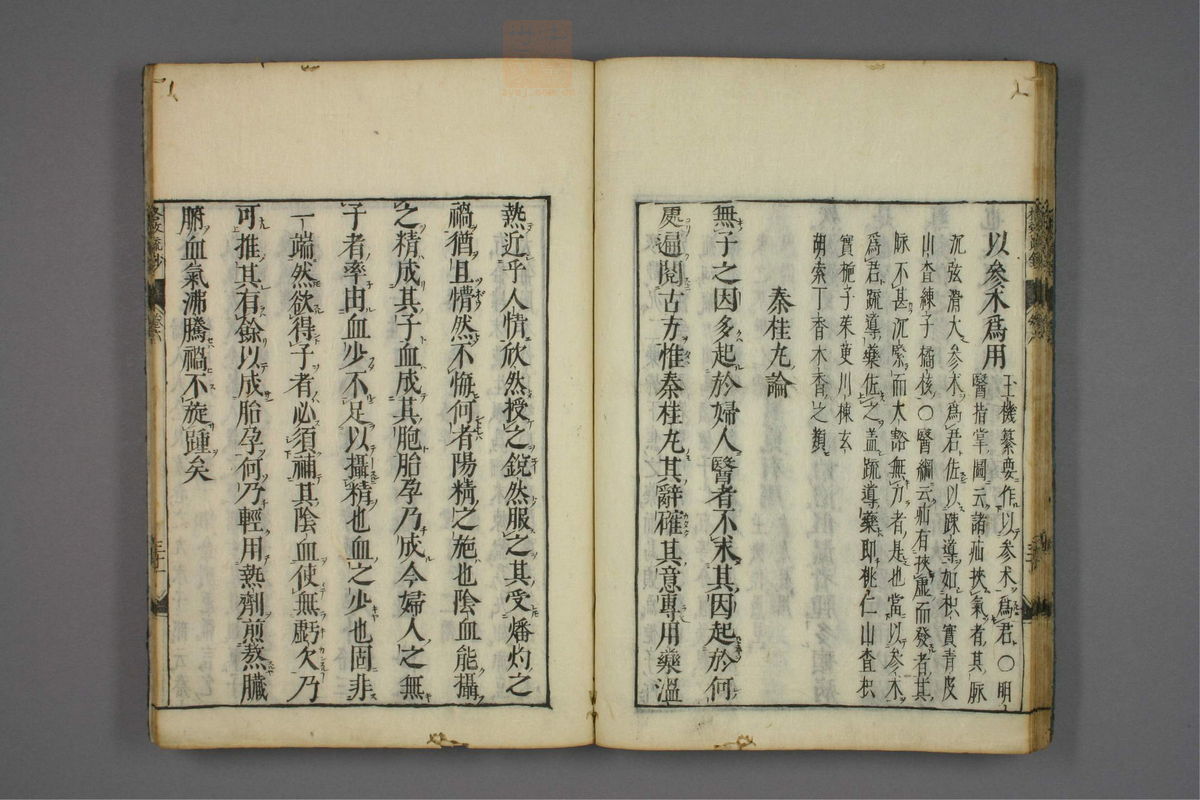 以參朮爲用
玉機纂要作以參朮爲君〇明
醫指掌圖云諸疝挾氣者其脈
沉弦滑大參朮爲君佐以疎導如枳實青皮
山査練子橘核〇醫綱云疝有挾虛而發者其
脉不甚沉緊而大豁無力者是也當以參朮
爲君疏導藥佐之蓋疏導藥即桃仁山査枳
實梔子茱萸川楝玄
胡索丁香木香之類
秦桂丸論
無子之因多起於婦人醫者不求其因起於何
處遍閱古方惟秦桂丸其辭確其意專用藥溫
熱近乎人情欣然授之銳然服之其受燔灼之
禍猶且懵然不悔何者陽精之施也陰血能攝
之精成其子血成其胞胎孕乃成今婦人之無
子者率由血少不足以攝精也血之少也固非
一端然欲得子者必須補其陰血使無虧欠乃
可推其有餘以成胎孕何乃輕用熱劑煎熬臟
腑血氣沸騰禍不旋踵矣